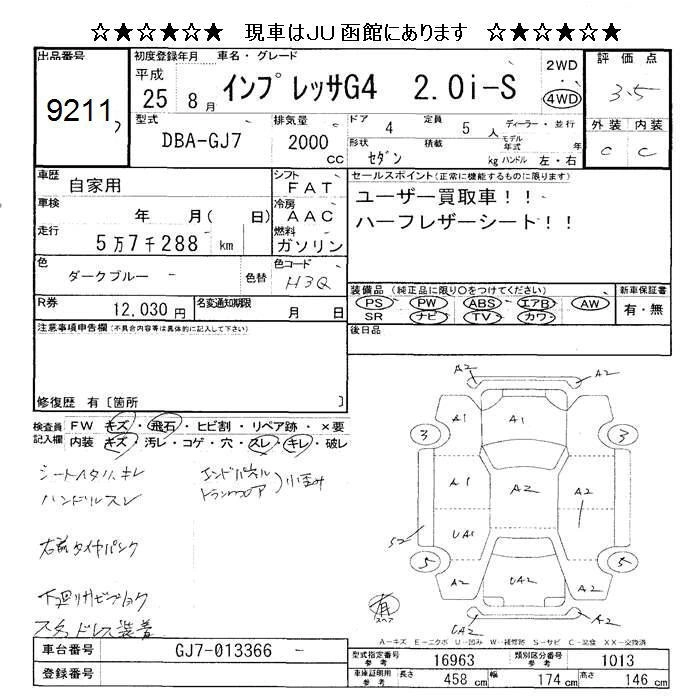 ☆★☆★☆★ 現車はJU函館にあります ☆★☆★☆★
出品番号 初度登録年月 車名・グレード 2WD 評価点
9211 平成 25 8月 インプレッサG4 2.0i-S ・ 4WD 3.5
型式 排気量 ドア 4 定員 5人 ディーラー・並行 外装 内装
DBA-GJ7 2000cc 形状 セダン 積載 kg モデル年式 年 ハンドル 左・右 C C
車歴 自家用 シフト FAT セールスポイント(正常に機能するものに限ります)
車検 年 月( 日) 冷房 AAC ユーザー買取車！！
走行 5万7千288 km 燃料 ガソリン ハーフレザーシート！！
色 ダークブルー 色替 色コード H3Q
装備品 (純正品に限り○をつけてください) 新車保証書
R券 12,030円 名変通知期限 月 日 PS PW ABS エアB AW 有・無
SR ナビ TV カワ
注意事項申告欄(不具合内容等は具体的に記入して下さい) 後日品
修復歴 有〔箇所 〕
検査員記入欄 FW キズ・飛石・ヒビ割・リペア跡・×要
内装 キズ・汚レ・コゲ・穴・スレ・キレ・破レ
シートヘタリ、キレ エンドパネル
ハンドルスレ トランクフロア )小歪み
右前タイヤパンク
下廻りサビブトク
スタッドレス装着
A2 A2
A1 A1
3 3
A1 A2 A2
UA1
S2
5 5
A2 UA2 A2
有 スペア
UA2 A2
A-キズ E-エクボ U-凹み W-補修跡 S-サビ C-腐食 XX-交換済
車台番号 GJ7-013366 型式指定番号 参考 16963 類別区分番号 参考 1013
登録番号 車庫証明用 参考 長さ 458 cm 幅 174 cm 高さ 146 cm